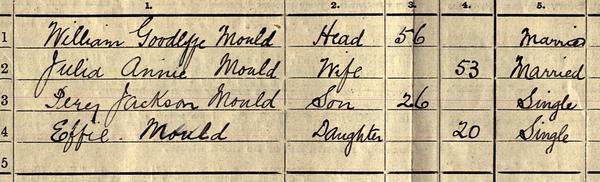 1. 2. 3. 4. 5.
1 William Goodlffe Mould Head 56 Married
2 Julia Annie Mould Wife 53 Married
3 Percy Jackson Mould Son 26 Single
4 Effie. Mould Daughter 20 Single
5